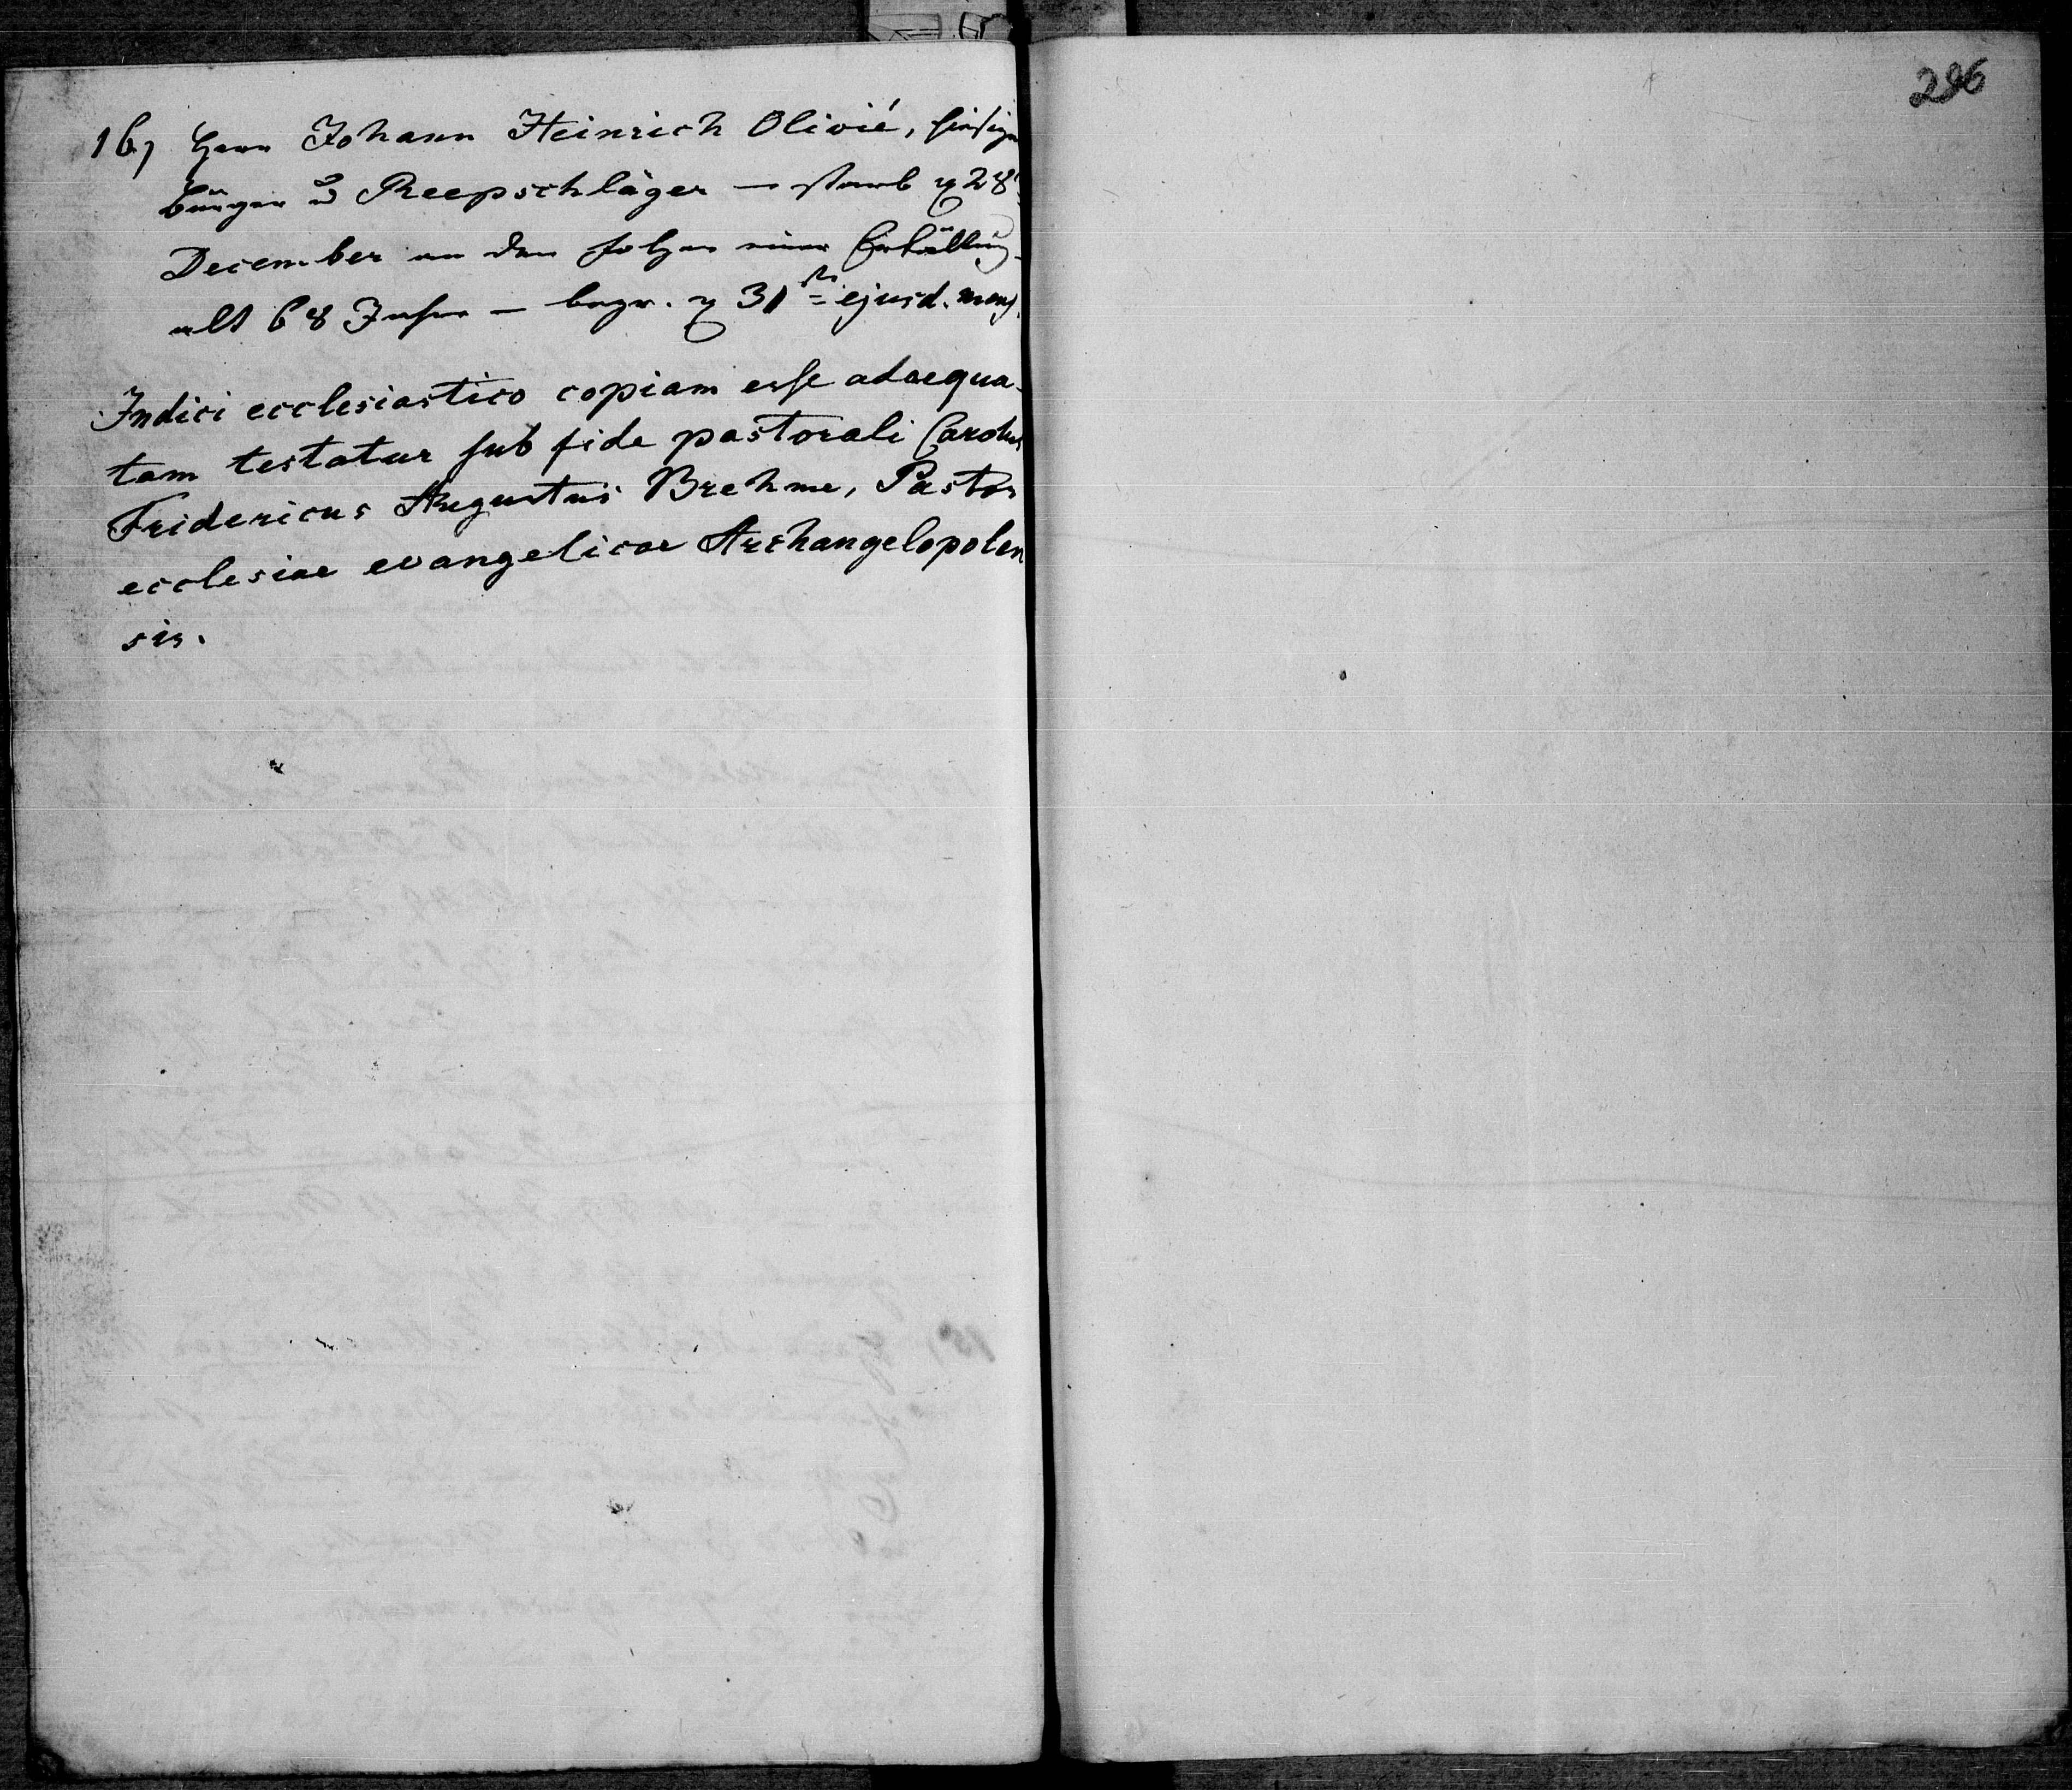 296
16, Herr Johann Heinrich Olivié, hiesiger
Bürger u Reepschläger – starb d 28
December an den Folgen einer Erkältung
alt 68 Jahre – begr. d 31sten ejusd. mens.
Indici ecclesiastico copiam esse adaequa-
tam testatur sub fide pastorali Carolus
Fridericus Augustus Brehme, Pastor
ecclesiae evangelicae Archangelopolen
sis.